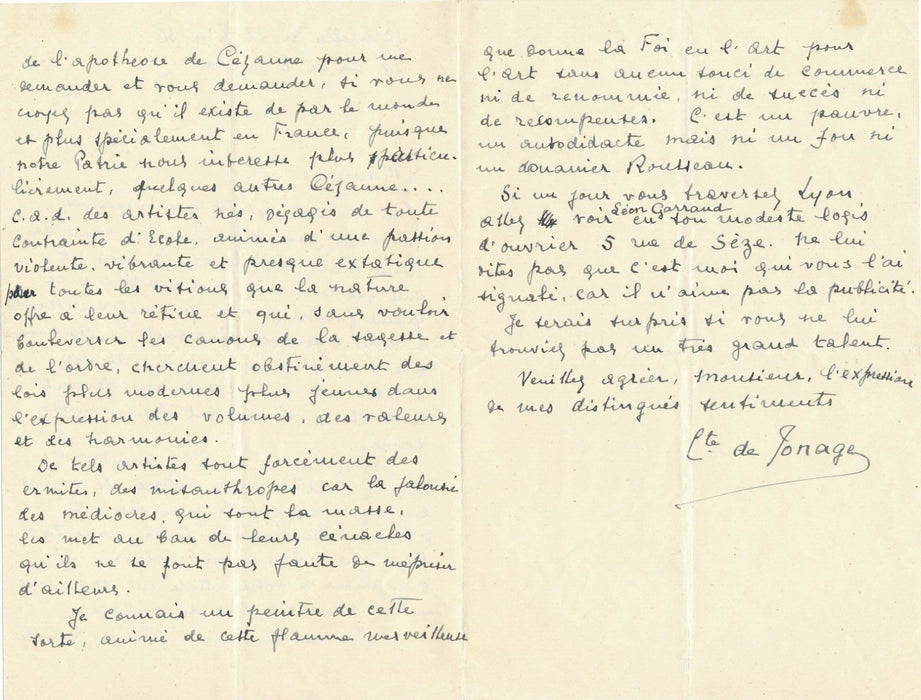 de l'apotheose de Cézanne pour me
demander et vous demander, si vous ne
croyez pas qu'il existe de par le monde
et plus spécialement en France, puisque
notre Patrie nous interesse plus particu-
lièrement, quelques autres Cézanne....
c.a.d. des artistes nés, dégagés de toute
contrainte d'Ecole, animés d'une passion
violente, vibrante et presque extatique
pour toutes les visions que la nature
offre à leur rétine et qui, sans vouloir
bouleverser les canons de la sagesse et
de l'ordre, cherchent obstinément des
lois plus modernes plus jeunes dans
l'expression des volumes, des valeurs
et des harmonies.
De tels artistes sont forcément des
ermites, des misanthropes car la jalousie
des médiocres, qui sont la masse,
les met au ban de leurs cénacles
qu'ils ne se font pas faute de mépriser
d'ailleurs.
Je connais un peintre de cette
sorte, animé de cette flamme merveilleuse
que donne la Foi en l'art pour
l'art sans aucun souci de commerce
ni de renommée, ni de succès ni
de recompenses. C'est un pauvre,
un autodidacte mais ni un fou ni
un douanier Rousseau.
Si un jour vous traversez Lyon
allez voir Léon Garraud en son modeste logis
d'ouvrier 5 rue de Sèze. Ne lui
dites pas que c'est moi qui vous l'ai
signalé, car il n'aime pas la publicité.
Je serais surpris si vous ne lui
trouviez pas un très grand talent.
Veuillez agréer, Monsieur, l'expression
de mes distingués sentiments
Cte de Jonage